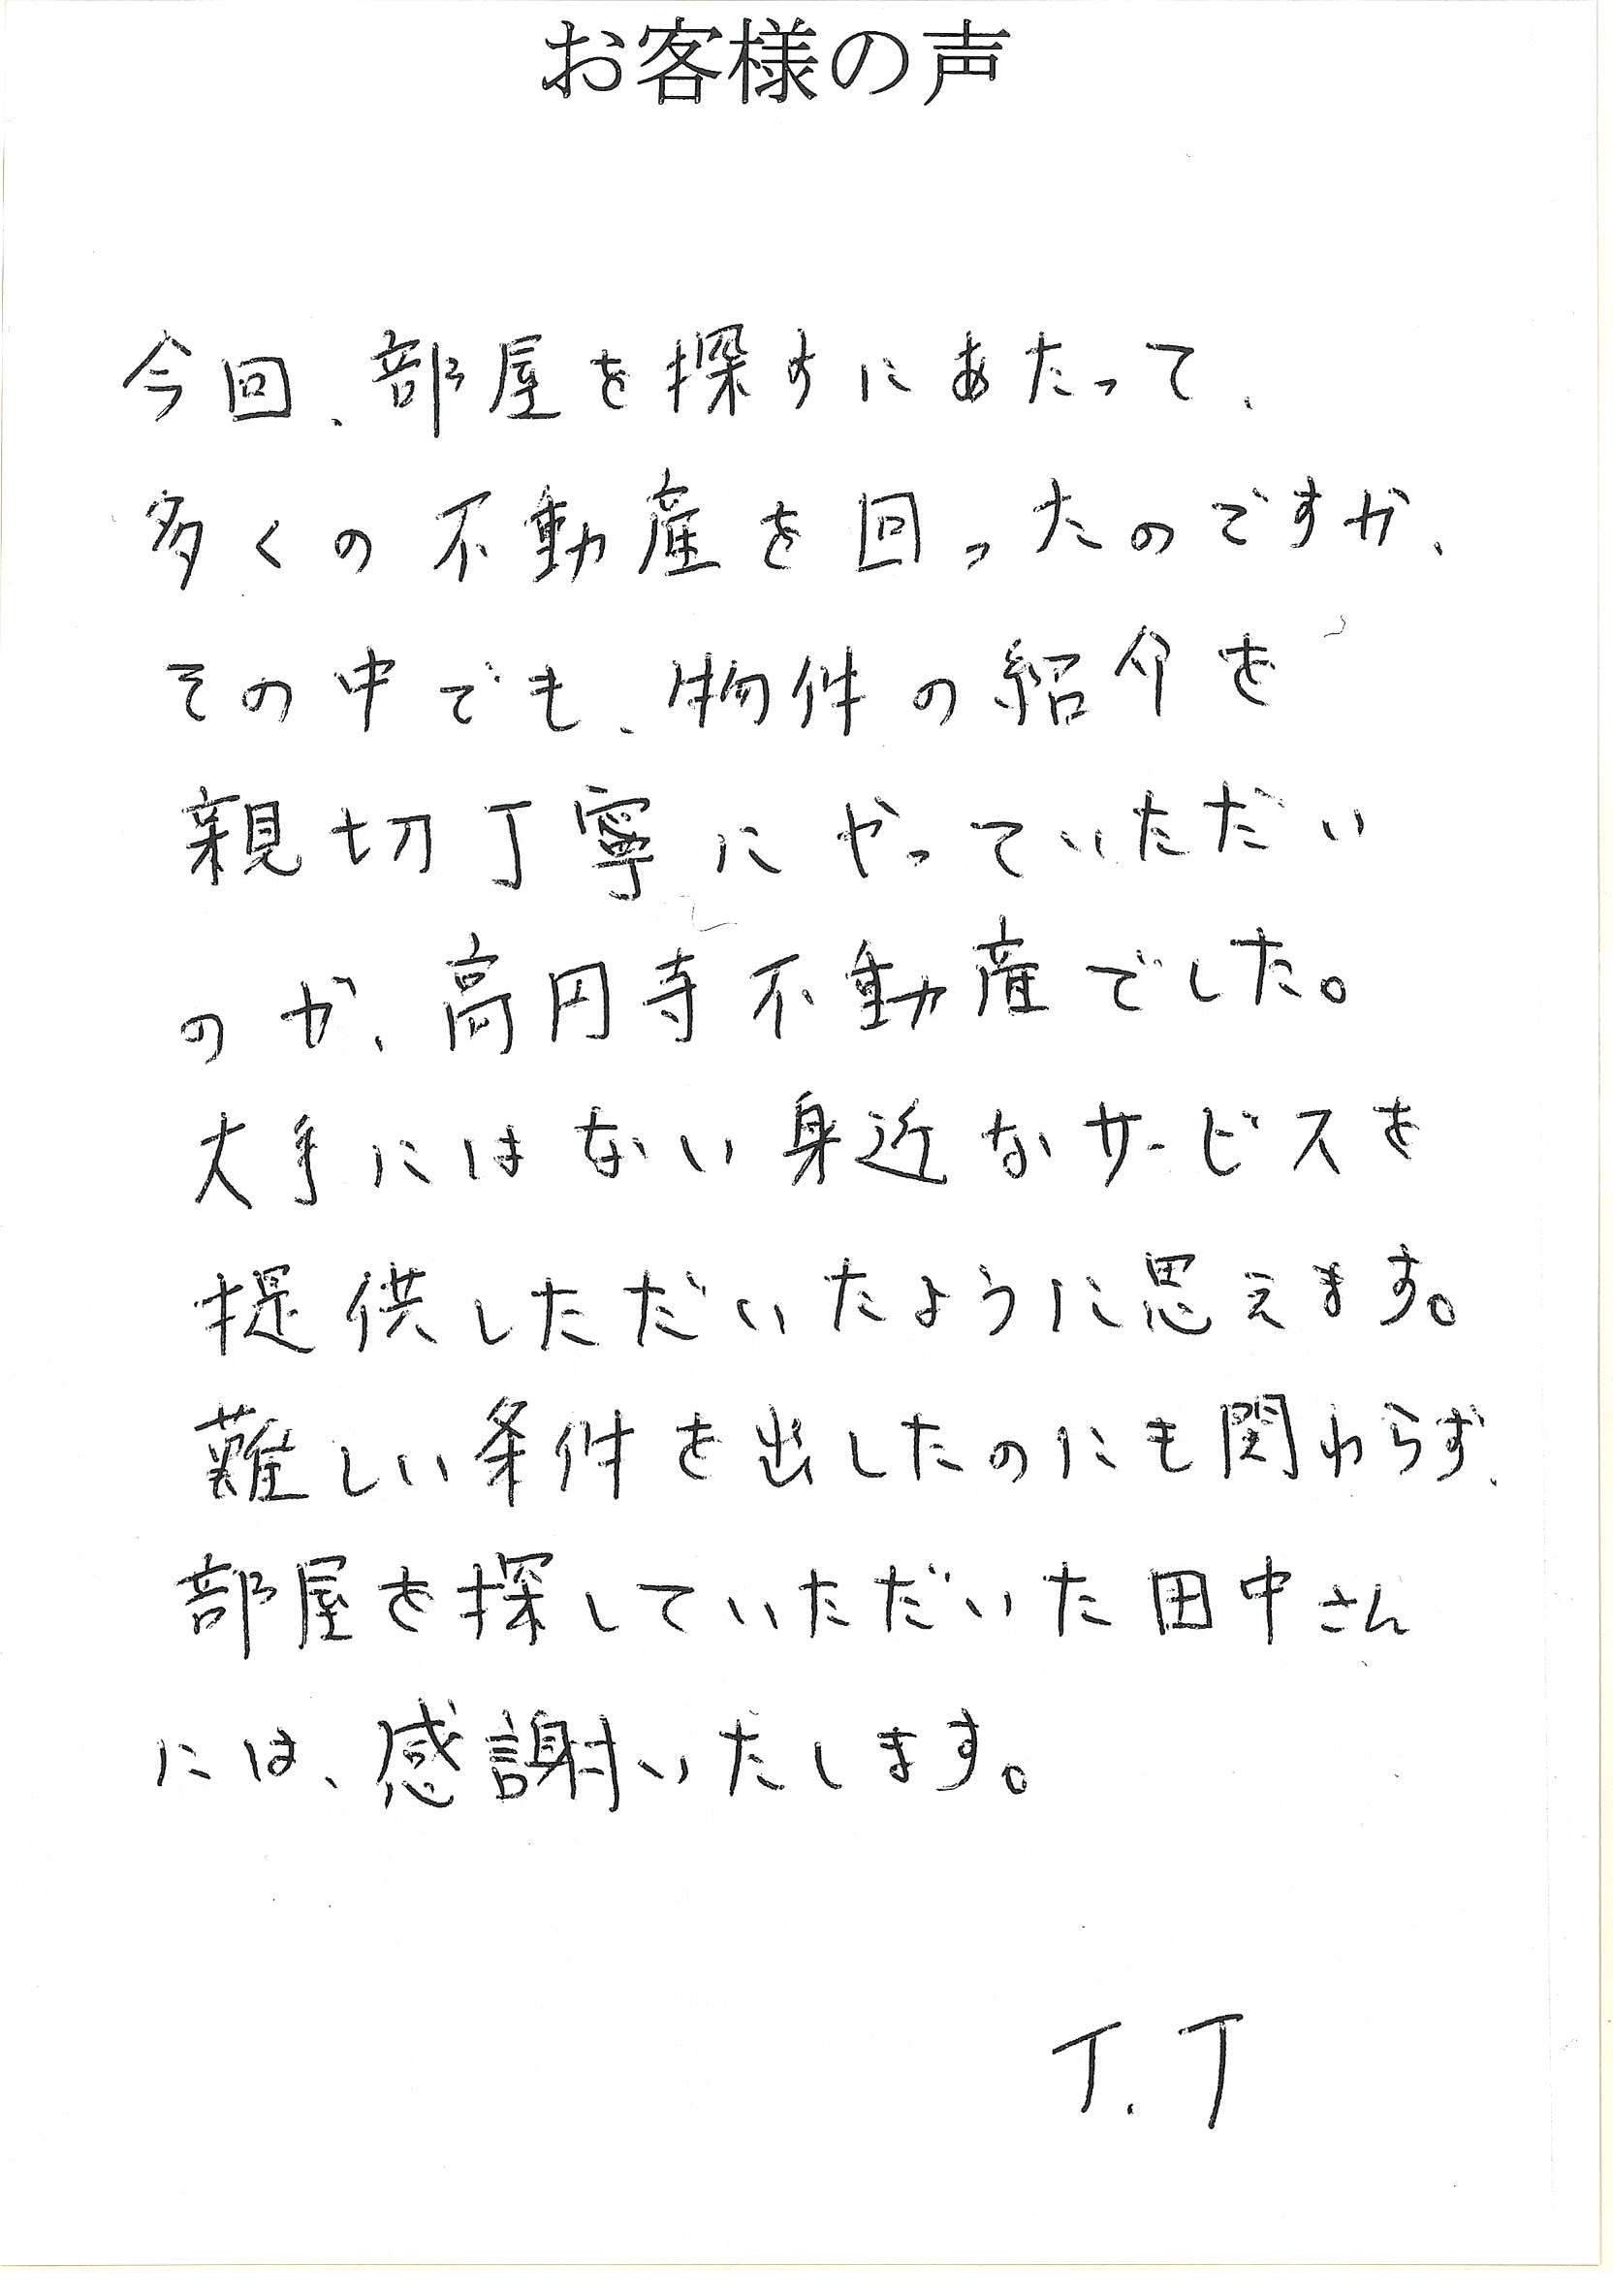 お客様の声
今回、部屋を探すにあたって、
多くの不動産を回ったのですが、
その中でも、物件の紹介を
親切丁寧にやっていただい
のが、高円寺不動産でした。
大手にはない身近なサービスを
提供しただいたように思えます。
難しい条件を出したのにも関わらず、
部屋を探していただいた田中さん
には、感謝いたします。
T.T